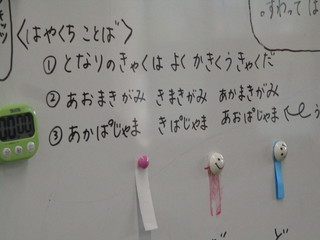 〈はやくち ことば〉
① となりのきゃくは よく かきくうきゃくだ
② あおまきがみ きまきがみ あかまきがみ
③ あかぱじゃま きぱじゃま あおぱじゃま